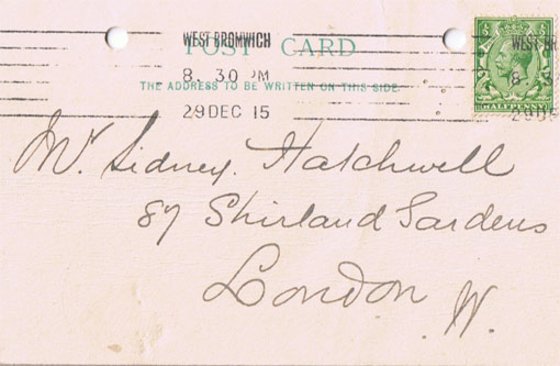 WEST BROMWICH WEST BR
POST CARD
8. 30 PM 8
THE ADDRESS TO BE WRITTEN ON THIS SIDE.
29 DEC 15 29 DE
HALFPENNY
Mr. Sidney Hatchwell
87 Shirland Gardens
London W.